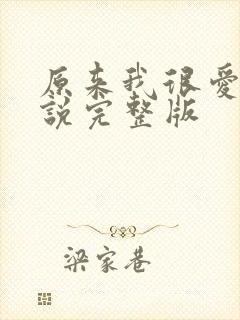 原来我很爱
说完整版
梁家巷